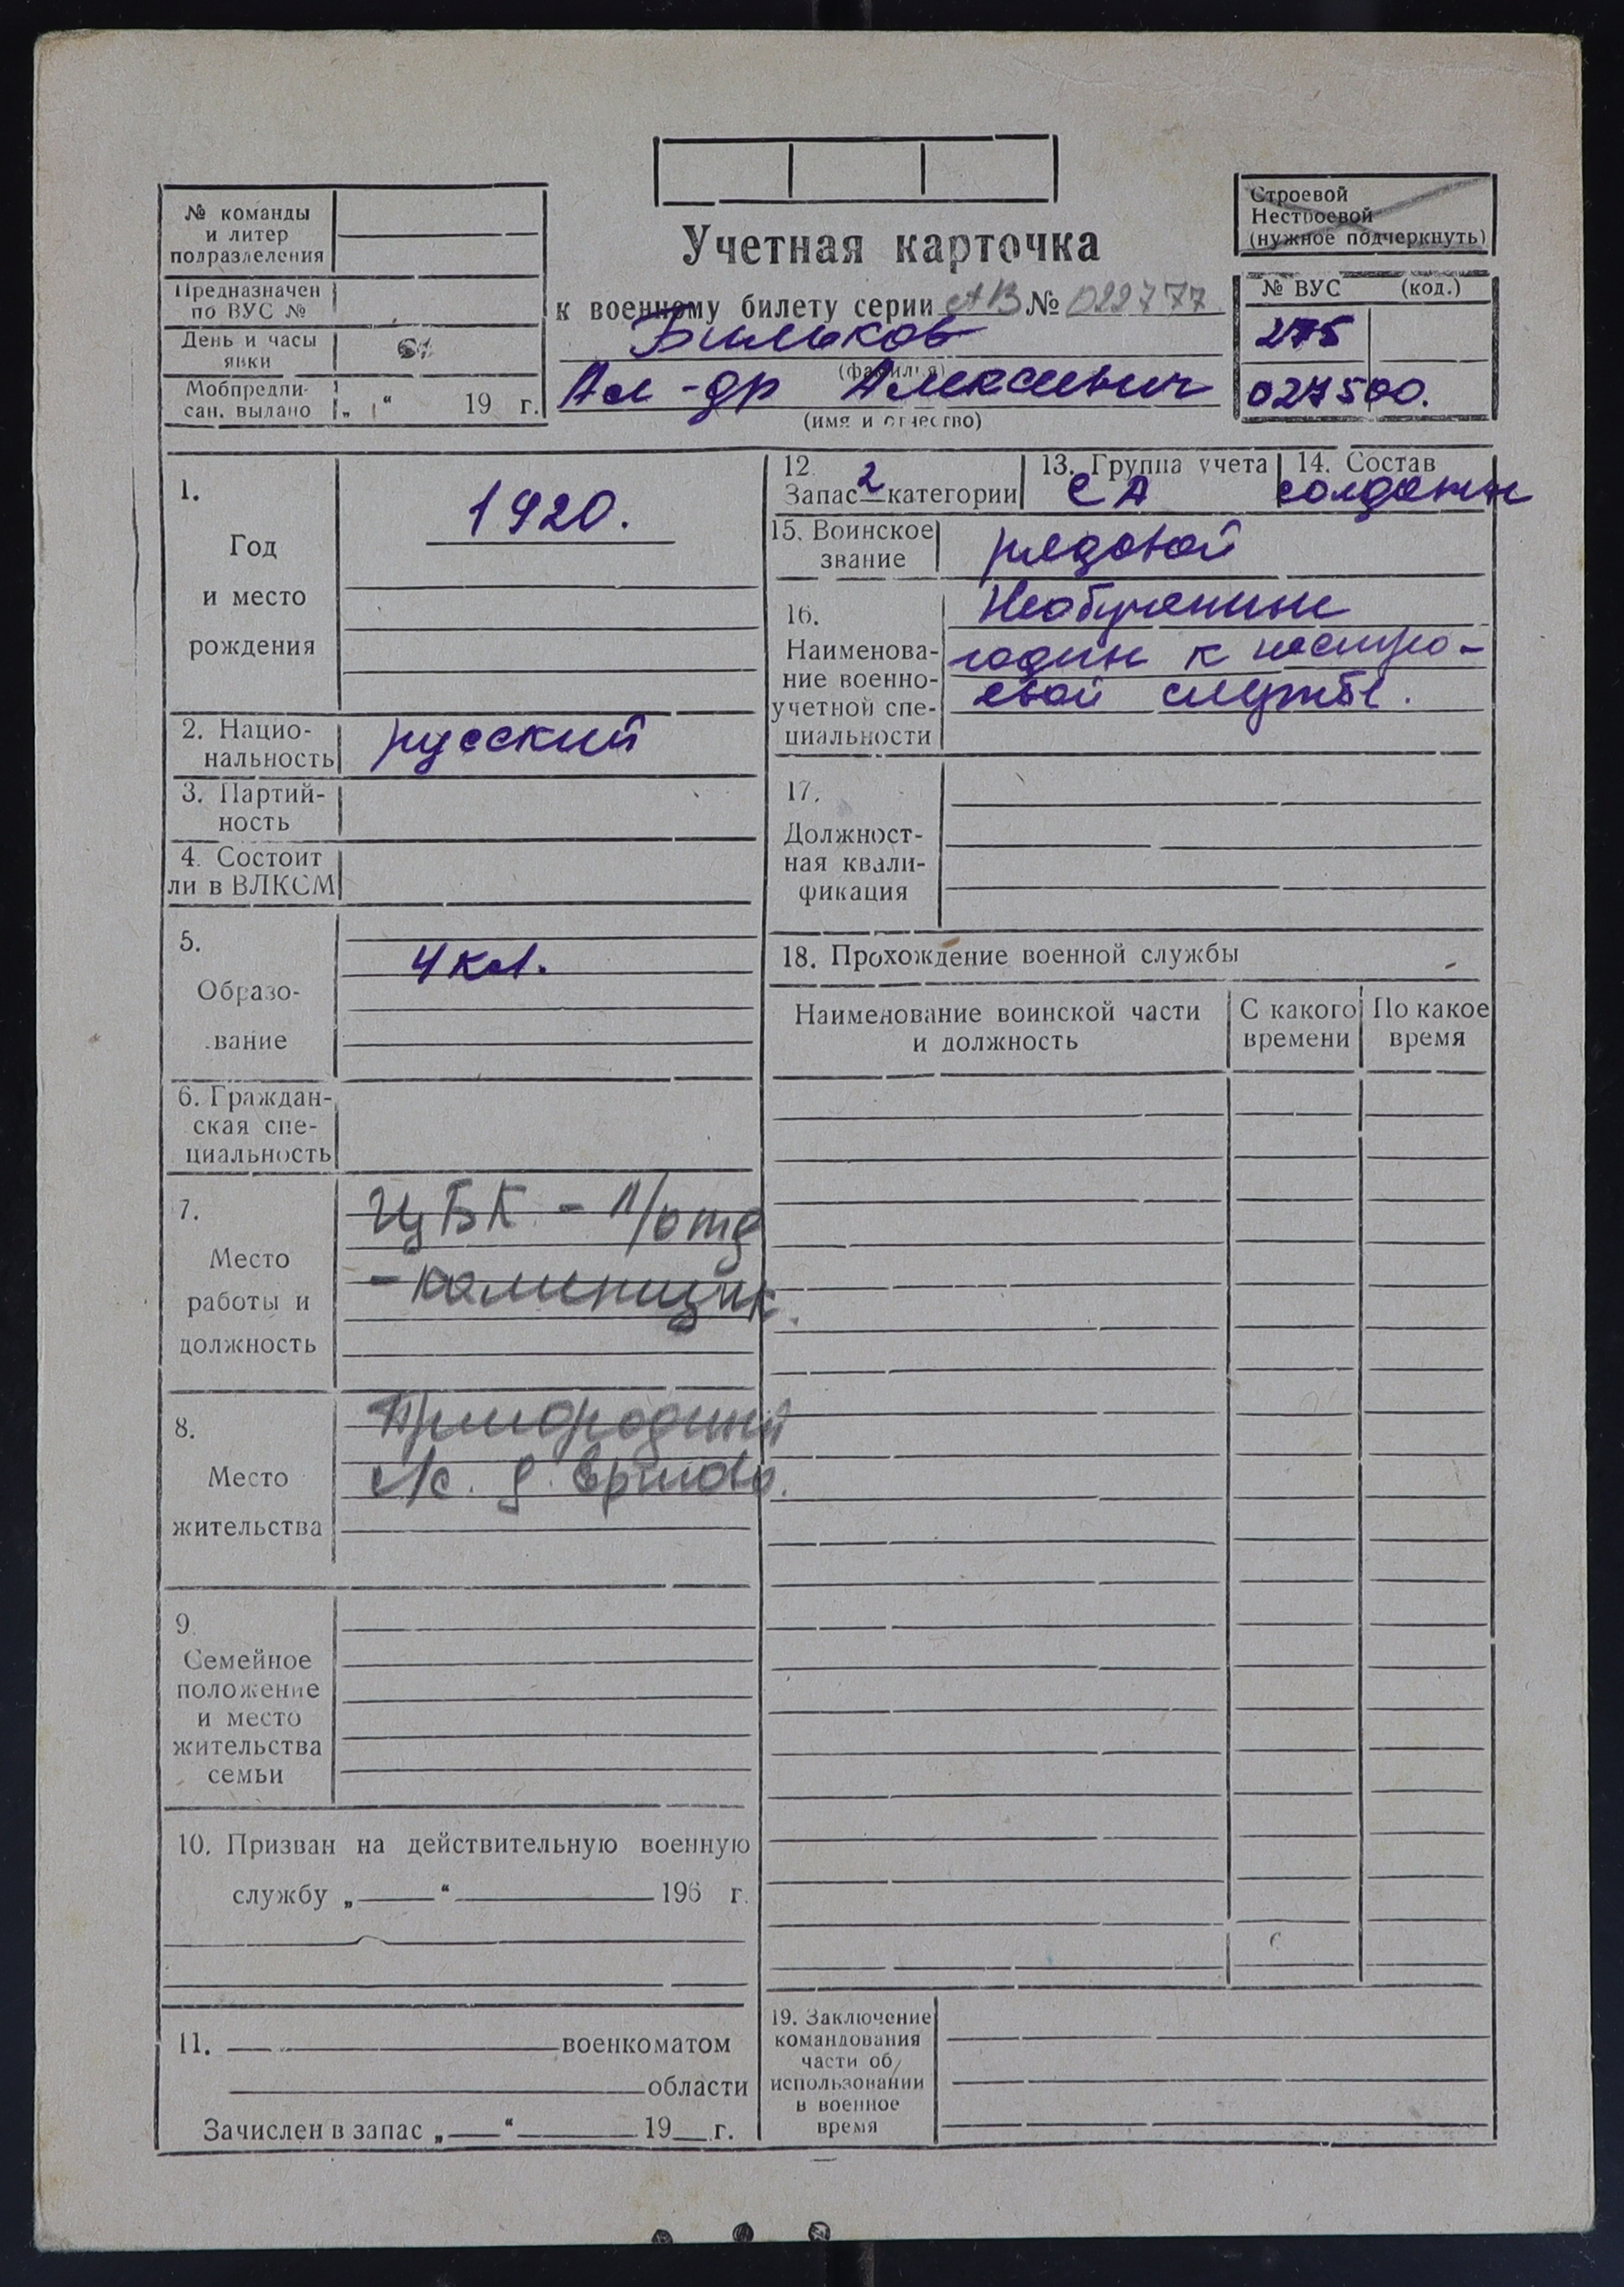 № команды
и литер
подразделения
Предназначен
по ВУС №
День и часы
явки
Мобпредпи-
сан. выдано „ “ 19 г.
Учетная карточка
к военному билету серии АВ № 022777
Бильков
(фамилия)
Ал-др Алексеевич
(имя и отчество)
Строевой
Нестроевой
(нужное подчеркнуть)
№ ВУС (код.)
275
027500.
1.
Год
и место
рождения
1920.
2. Нацио-
нальность
русский
3. Партий-
ность
4. Состоит
ли в ВЛКСМ
5.
Образо-
вание
4 кл.
6. Граждан-
ская спе-
циальность
7.
Место
работы и
должность
ЦБК -
- каменщик.
8.
Место
жительства
с/с. д.
9.
Семейное
положение
и место
жительства
семьи
10. Призван на действительную военную
службу „ “ 196 г.
11. военкоматом
области
Зачислен в запас „ “ 19 г.
12.
Запас 2 категории
13. Группа учета
СА
14. Состав
солдаты
15. Воинское
звание
рядовой
16.
Наименова-
ние военно-
учетной спе-
циальности
Необученные
годные к нестро-
евой службе.
17.
Должност-
ная квали-
фикация
18. Прохождение военной службы
Наименование воинской части
и должность
С какого
времени
По какое
время
19. Заключение
командования
части об
использовании
в военное
время